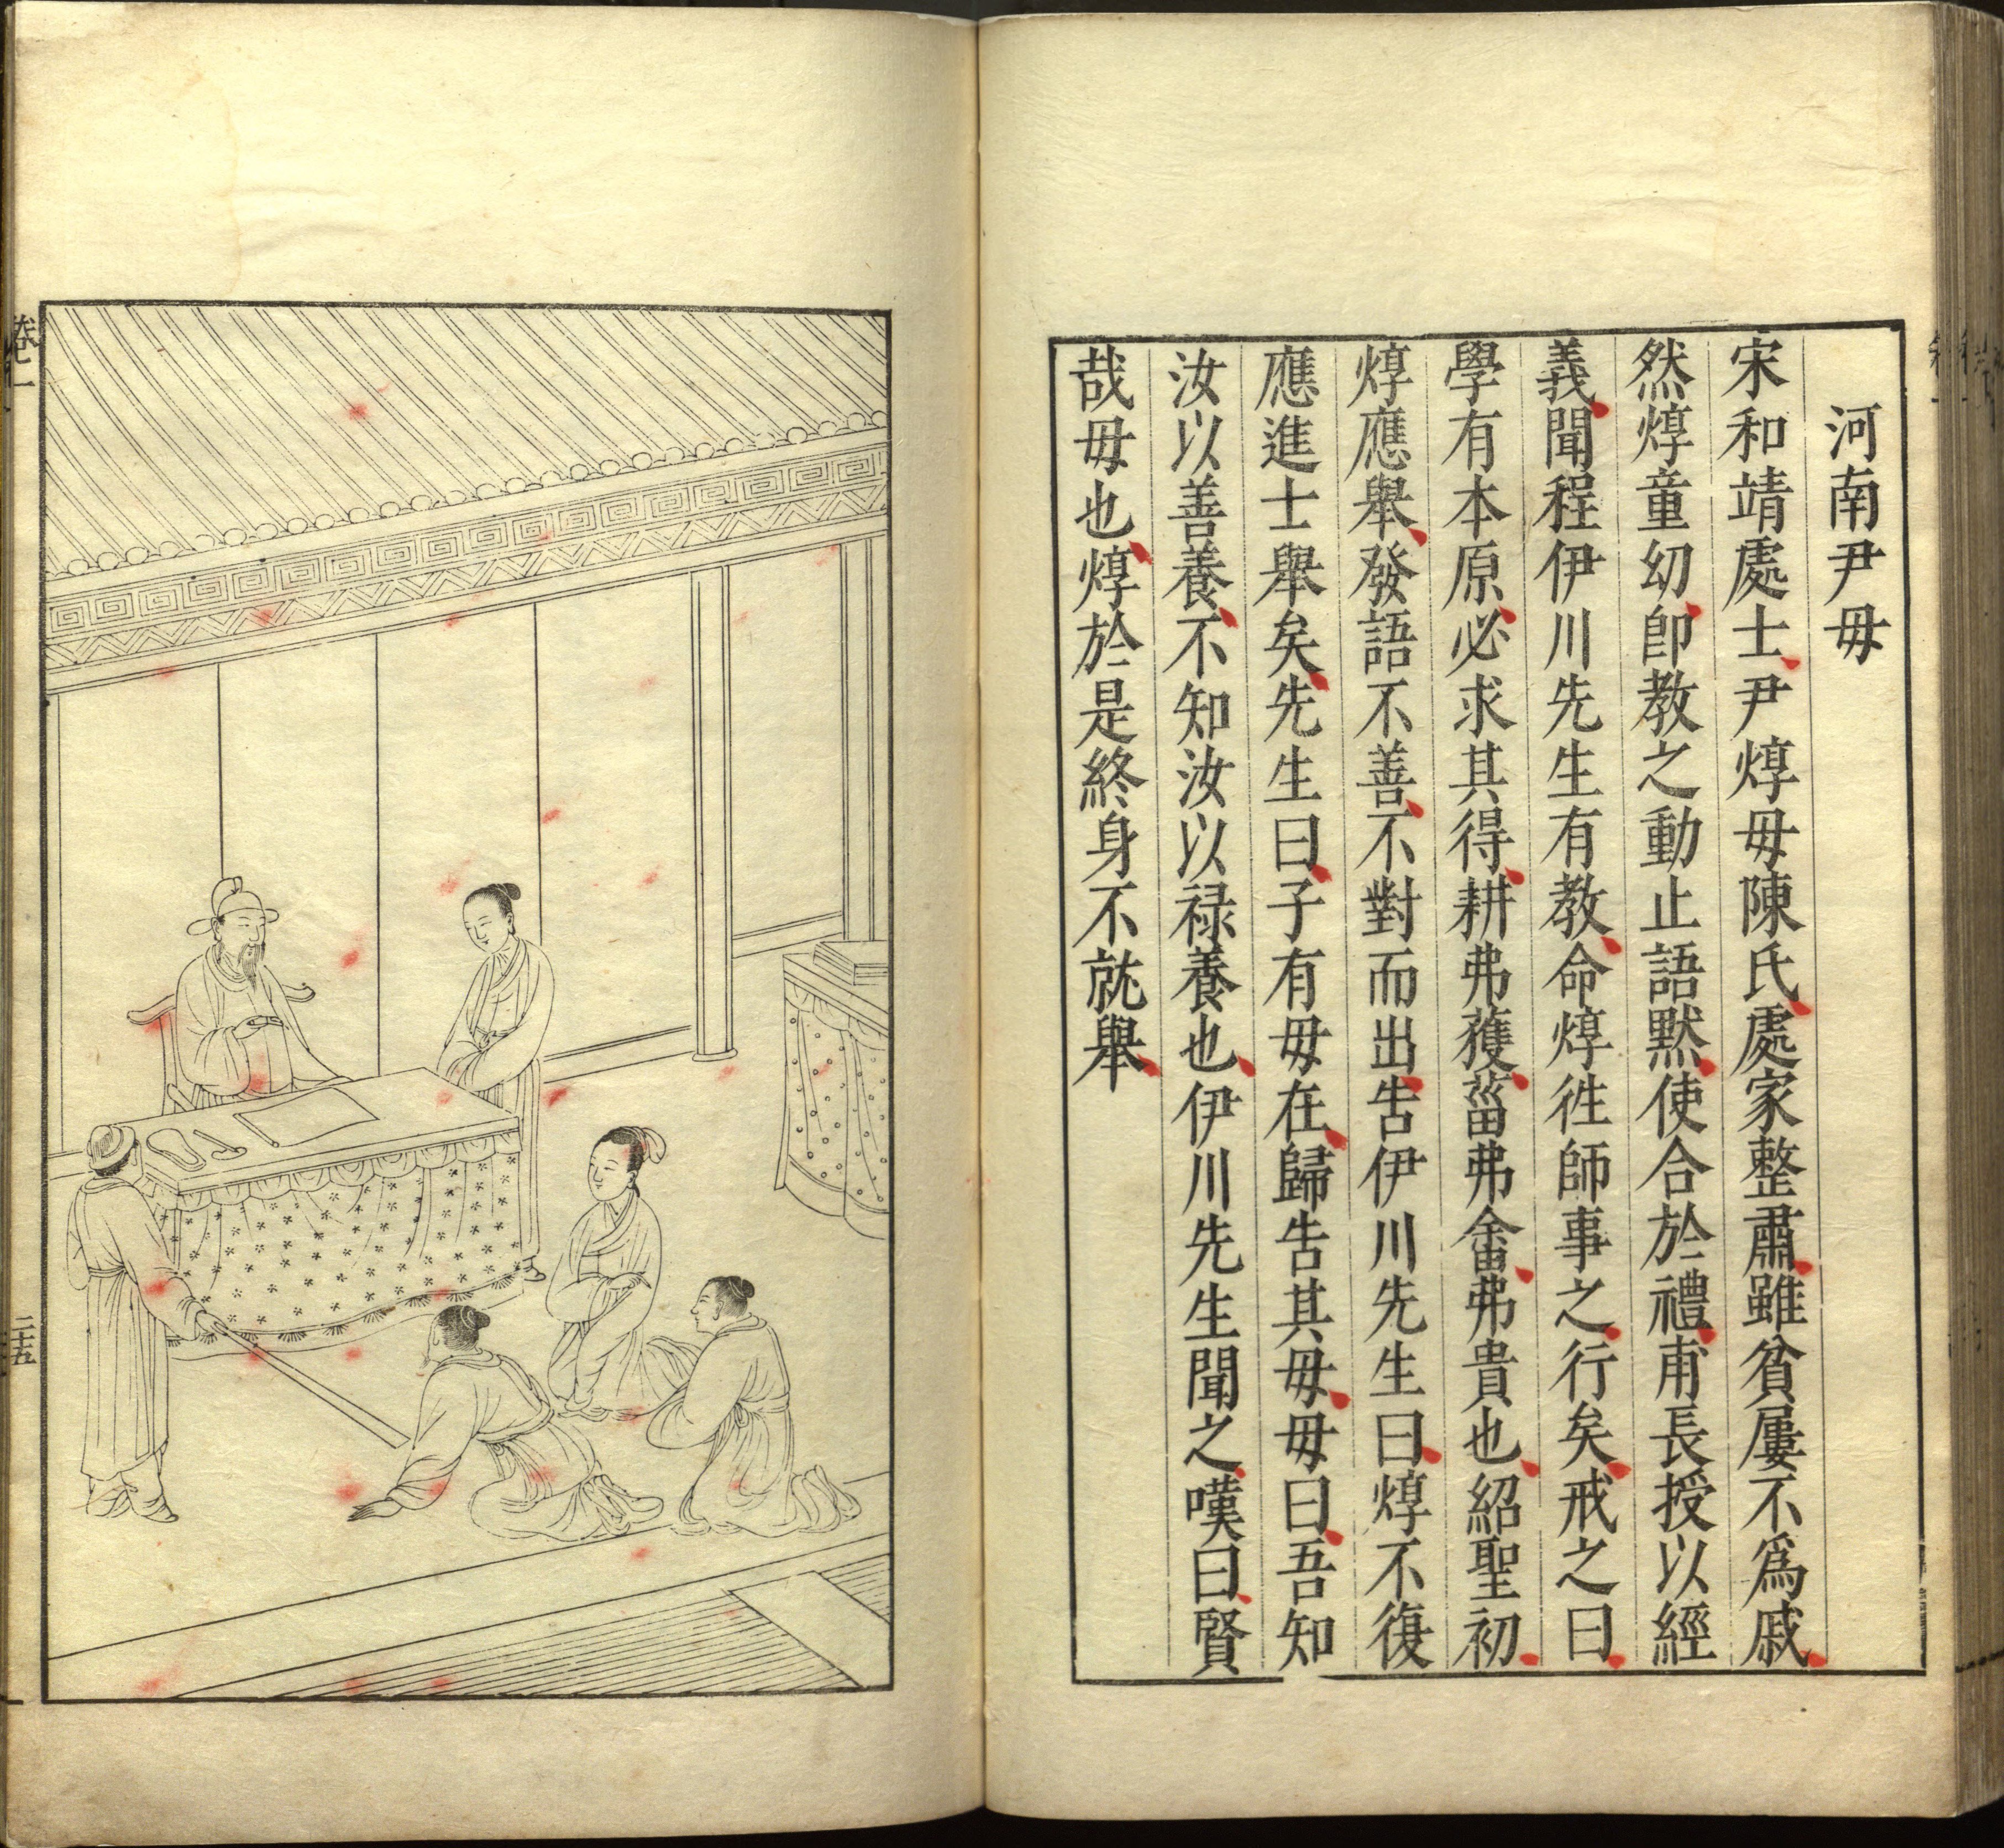 河南尹毋
宋和靖處士尹焞毋陳氏處家整肅雖貧屢不爲戚
然焞童幼卽教之動止語默使合於禮甫長授以經
義聞程伊川先生有教命焞徃師事之行矣戒之曰
學有本原必求其得耕弗穫菑弗畬弗貴也紹聖初
焞應舉發語不善不對而出告伊川先生曰焞不復
應進士舉矣先生曰子有毋在歸告其毋毋曰吾知
汝以善養不知汝以禄養也伊川先生聞之嘆曰賢
哉毋也焞於是終身不就舉
卷一
二十五